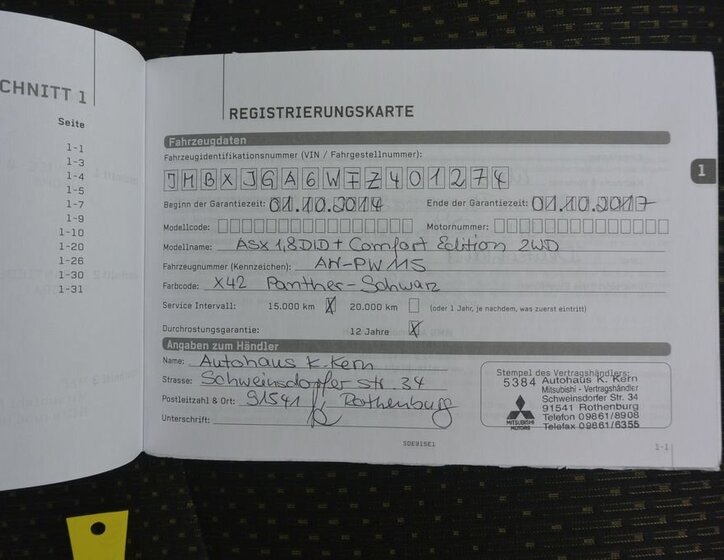 CHNITT 1
Seite
1-1
1-3
1-4
1-5
1-7
1-9
1-10
1-20
1-26
1-30
1-31
REGISTRIERUNGSKARTE
Fahrzeugdaten
Fahrzeugidentifikationsnummer (VIN / Fahrgestellnummer):
JMBXJGA6WFZ401274
Beginn der Garantiezeit: 01.10.2014 Ende der Garantiezeit: 01.10.2017
Modellcode: Motornummer:
Modellname: ASX 1,8DID+ Comfort Edition 2WD
Fahrzeugnummer (Kennzeichen): AN-PW 115
Farbcode: X42 Panther-Schwarz
Service Intervall: 15.000 km X 20.000 km (oder 1 Jahr, je nachdem, was zuerst eintritt)
Durchrostungsgarantie: 12 Jahre X
Angaben zum Händler
Name: Autohaus K. Kern
Strasse: Schweinsdorfer Str. 34
Postleitzahl & Ort: 91541 Rothenburg
Unterschrift:
Stempel des Vertragshändlers:
5384 Autohaus K. Kern
Mitsubishi - Vertragshändler
Schweinsdorfer Str. 34
91541 Rothenburg
Telefon 09861/8908
Telefax 09861/6355
MITSUBISHI
MOTORS
SDE915E1
1-1
1